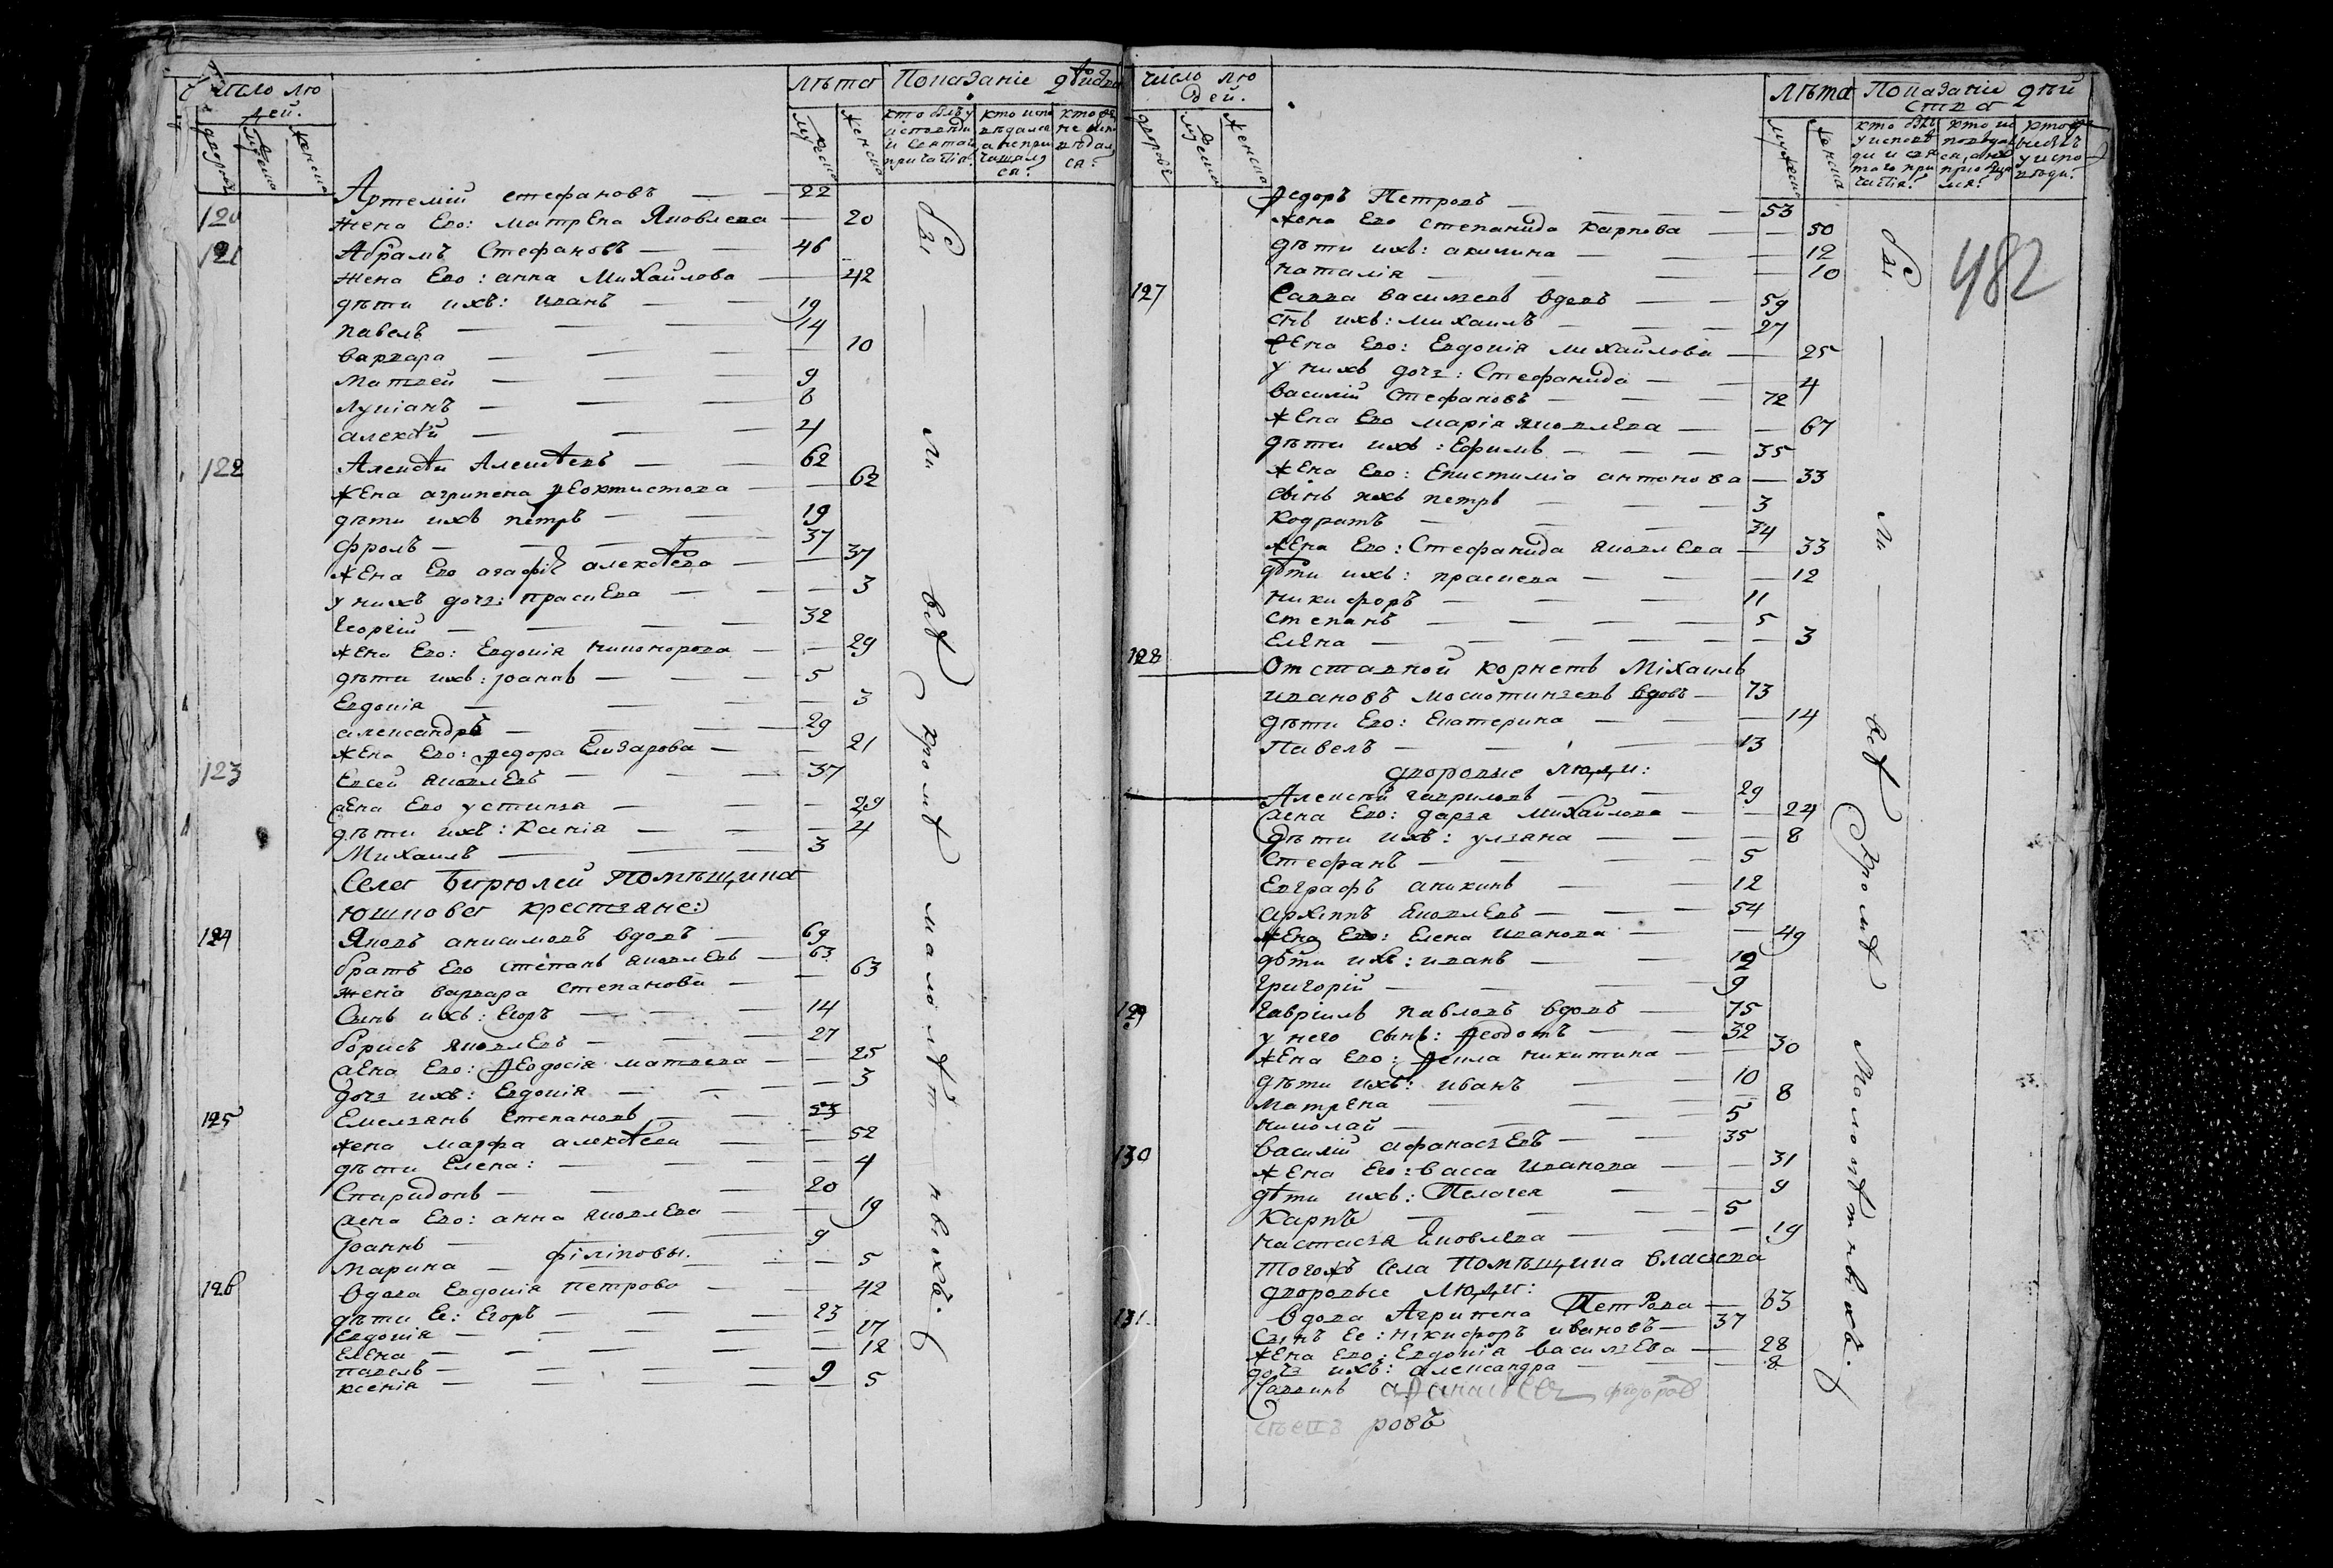 число лю
дей.
лѣта Показаніе дѣйства
дворовъ
мужеска
женска
мужеска
женска
кто былъ у исповѣди и святаго причастія?
кто исповѣдался а не причащался?
Артемій Стефановъ — 22
120 жена Его: матрЕна Яковлева — 20
121 Абрамъ Стефановъ — 46
жена Его: анна Михайлова — 42
дѣти ихъ: иванъ — 19
павелъ — 14
варвара — 10
матвей — 9
лукіанъ — 6
алексѣй — 4
122 Алексѣй Алексѣевъ — 62
жЕна агрипена ѳеоктистова — 62
дѣти ихъ петръ — 19
фролъ — 37
жЕна Его агафія алексѣева — 37
у нихъ дочь: прасковя — 3
Георгій — 32
жЕна Его: Евдокія никонорова — 29
дѣти ихъ: іоаннъ — 5
Евдокія — 3
александръ — 29
жЕна Его: ѳедора Елизарова — 21
123 Евсей яковлЕвъ — 37
жЕна Его устинья — 29
дѣти ихъ: Ксенія — 4
Михаилъ — 3
Села Бирюлей Помѣщика
Юшкова крестьяне:
124 Яковъ анисимовъ вдовъ — 69
братъ Его степанъ яковлЕвъ — 63
жена варвара степанова — 63
Сынъ ихъ: Егоръ — 14
борисъ яковлЕвъ — 27
жЕна Его: ѳЕодосія матвеева — 25
дочь ихъ: Евдокія — 3
125 Емельянъ Степановъ — 53
жена марфа алексѣева — 52
дѣти Елена: — 4
Спиридонъ — 20
жена Его: анна яковлЕва — 19
Іоаннъ — 9
марина — філіповы. — 5
126 вдова Евдокія петрова — 42
дѣти Ее: Егоръ — 23
Евдокія — 17
Елена — 12
павелъ — 9
ксенія — 5
бы — ли всѣ кромѣ малолѣтныхъ.
число лю
дей.
Лѣта Показаніе дѣй
ства
дворовъ
мужеска
женска
мужеска
женска
482
ѳедоръ Петровъ — 53
жена Его степанида карпова — 50
дѣти ихъ: акилина — 12
наталія — 10
127 Савва васильевъ вдовъ — 59
снъ ихъ: михаилъ — 27
жЕна Его: Евдокія михайлова — 25
у нихъ дочь: Стефанида — 4
василій Стефановъ — 72
жЕна Его марія яковлЕва — 67
дѣти ихъ: Ефимъ — 35
жЕна Его: Епистиміа антонова — 33
сынъ ихъ петръ — 3
кодратъ — 34
жЕна Его: Стефанида яковлЕва — 33
дѣти ихъ: прасковя — 12
никифоръ — 11
степанъ — 5
Елена — 3
128 Отставной корнетъ Міхаилъ
ивановъ вдовъ — 73
дѣти Его: Екатерина — 14
Павелъ — 13
дворовые люди:
Алексѣй гавриловъ — 29
жена Его: дарья Михайлова — 24
дѣти ихъ: ульяна — 8
Стефанъ — 5
Евграфъ аникинъ — 12
архіппъ яковлЕвъ — 54
жЕна Его: Елена иванова — 49
дѣти ихъ: иванъ — 12
Григорій — 9
129 Гавріилъ павловъ вдовъ — 75
у него сынъ: ѳеодотъ — 32
жЕна Его: ѳекла никитина — 30
дѣти ихъ: иванъ — 10
МатрЕна — 8
николай — 5
130 василій афанасьЕвъ — 35
жЕна Его: васса иванова — 31
дѣти ихъ: Пелагея — 9
Карпъ — 5
настасья яковлЕва — 19
Тогожъ Села Помѣщика
дворовые люди:
131. вдова Агрипена Петрова — 63
Сынъ Ее: нікифоръ ивановъ — 37
жЕна Его: Евдокія васильЕва — 28
дочь ихъ: александра — 8
ровъ
бы — ли всѣ кромѣ Малолѣтныхъ.